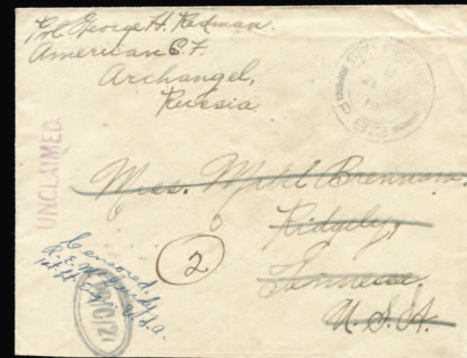 Pvt George H. Redman.
American E.F.
Archangel,
Russia
UNCLAIMED
Miss. Mabel Brennam.
Ridgely,
Tennessee.
U.S.A.
2
Censored.
R.E.
1st. Lt. U.S.A.